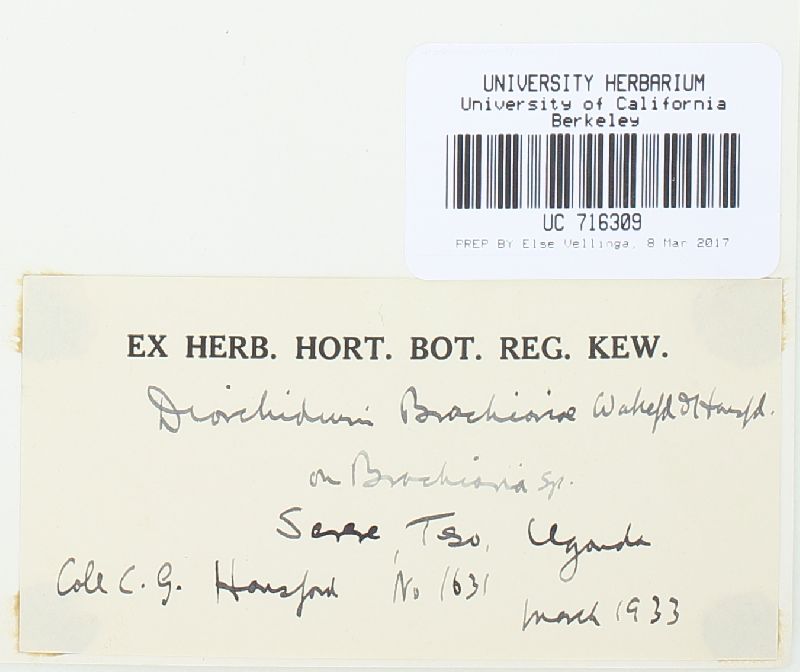 UNIVERSITY HERBARIUM
University of California
Berkeley
UC 716309
PREP BY Else Vellinga, 8 Mar 2017
EX HERB. HORT. BOT. REG. KEW.
Diorchidium Brachiariae Wakefd & Hansfd.
on Brachiaria sp.
Serere, Teso, Uganda
Coll C. G. Hansford No 1631
March 1933